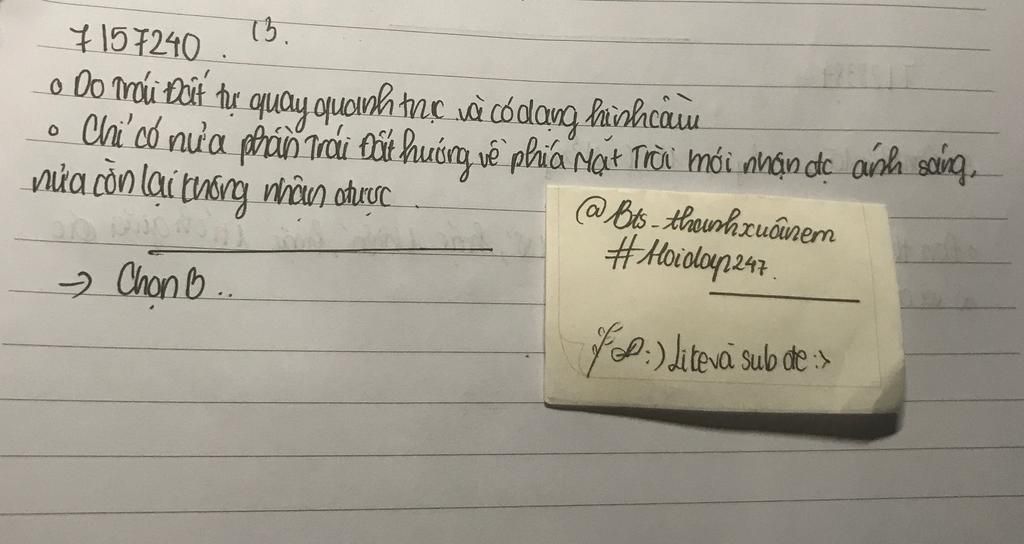 7157240. 13.
o Do Trái Đất tự quay quanh trục và có dạng hình cầu
o Chỉ có nửa phần Trái Đất hướng về phía Mặt Trời mới nhận đc ánh sáng,
nửa còn lại không nhận được.
→ Chọn B..
@Bts_thanhxuânem
#Hoidap247.
:) Like và sub đe :>